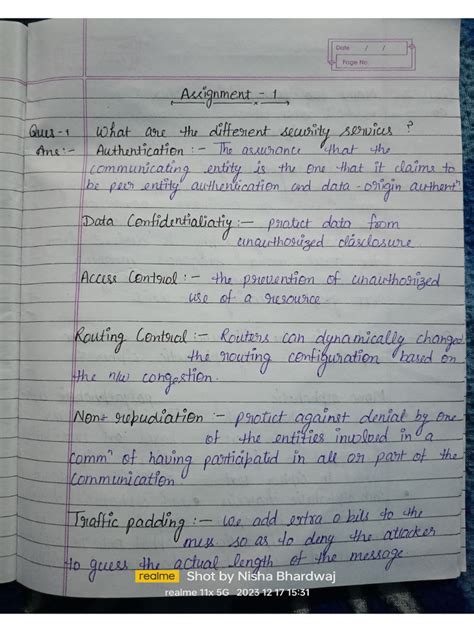 Date / /
Page No.
Assignment - 1
Ques-1 What are the different security services ?
Ans:- Authentication :- The assurance that the
communicating entity is the one that it claims to
be peer entity authentication and data-origin authentⁿ
Data Confidentialiatiy :- protect data from
unauthorized disclosure
Access Control :- the prevention of unauthorized
use of a resource.
Routing Control :- Routers can dynamically changed
the routing configuration based on
the n/w congestion.
Non- repudiation :- protect against denial by one
of the entities involved in a
commⁿ of having participated in all or part of the
communication
Traffic padding :- we add extra a bits to the
mess so as to deny the attacker
to guess the actual length of the message
realme Shot by Nisha Bhardwaj
realme 11x 5G 2023 12 17 15:31